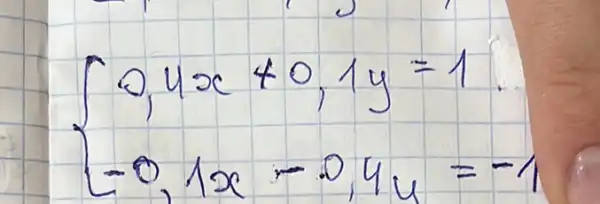 0,4x + 0,1y = 1
-0,1x - 0,4y = -1